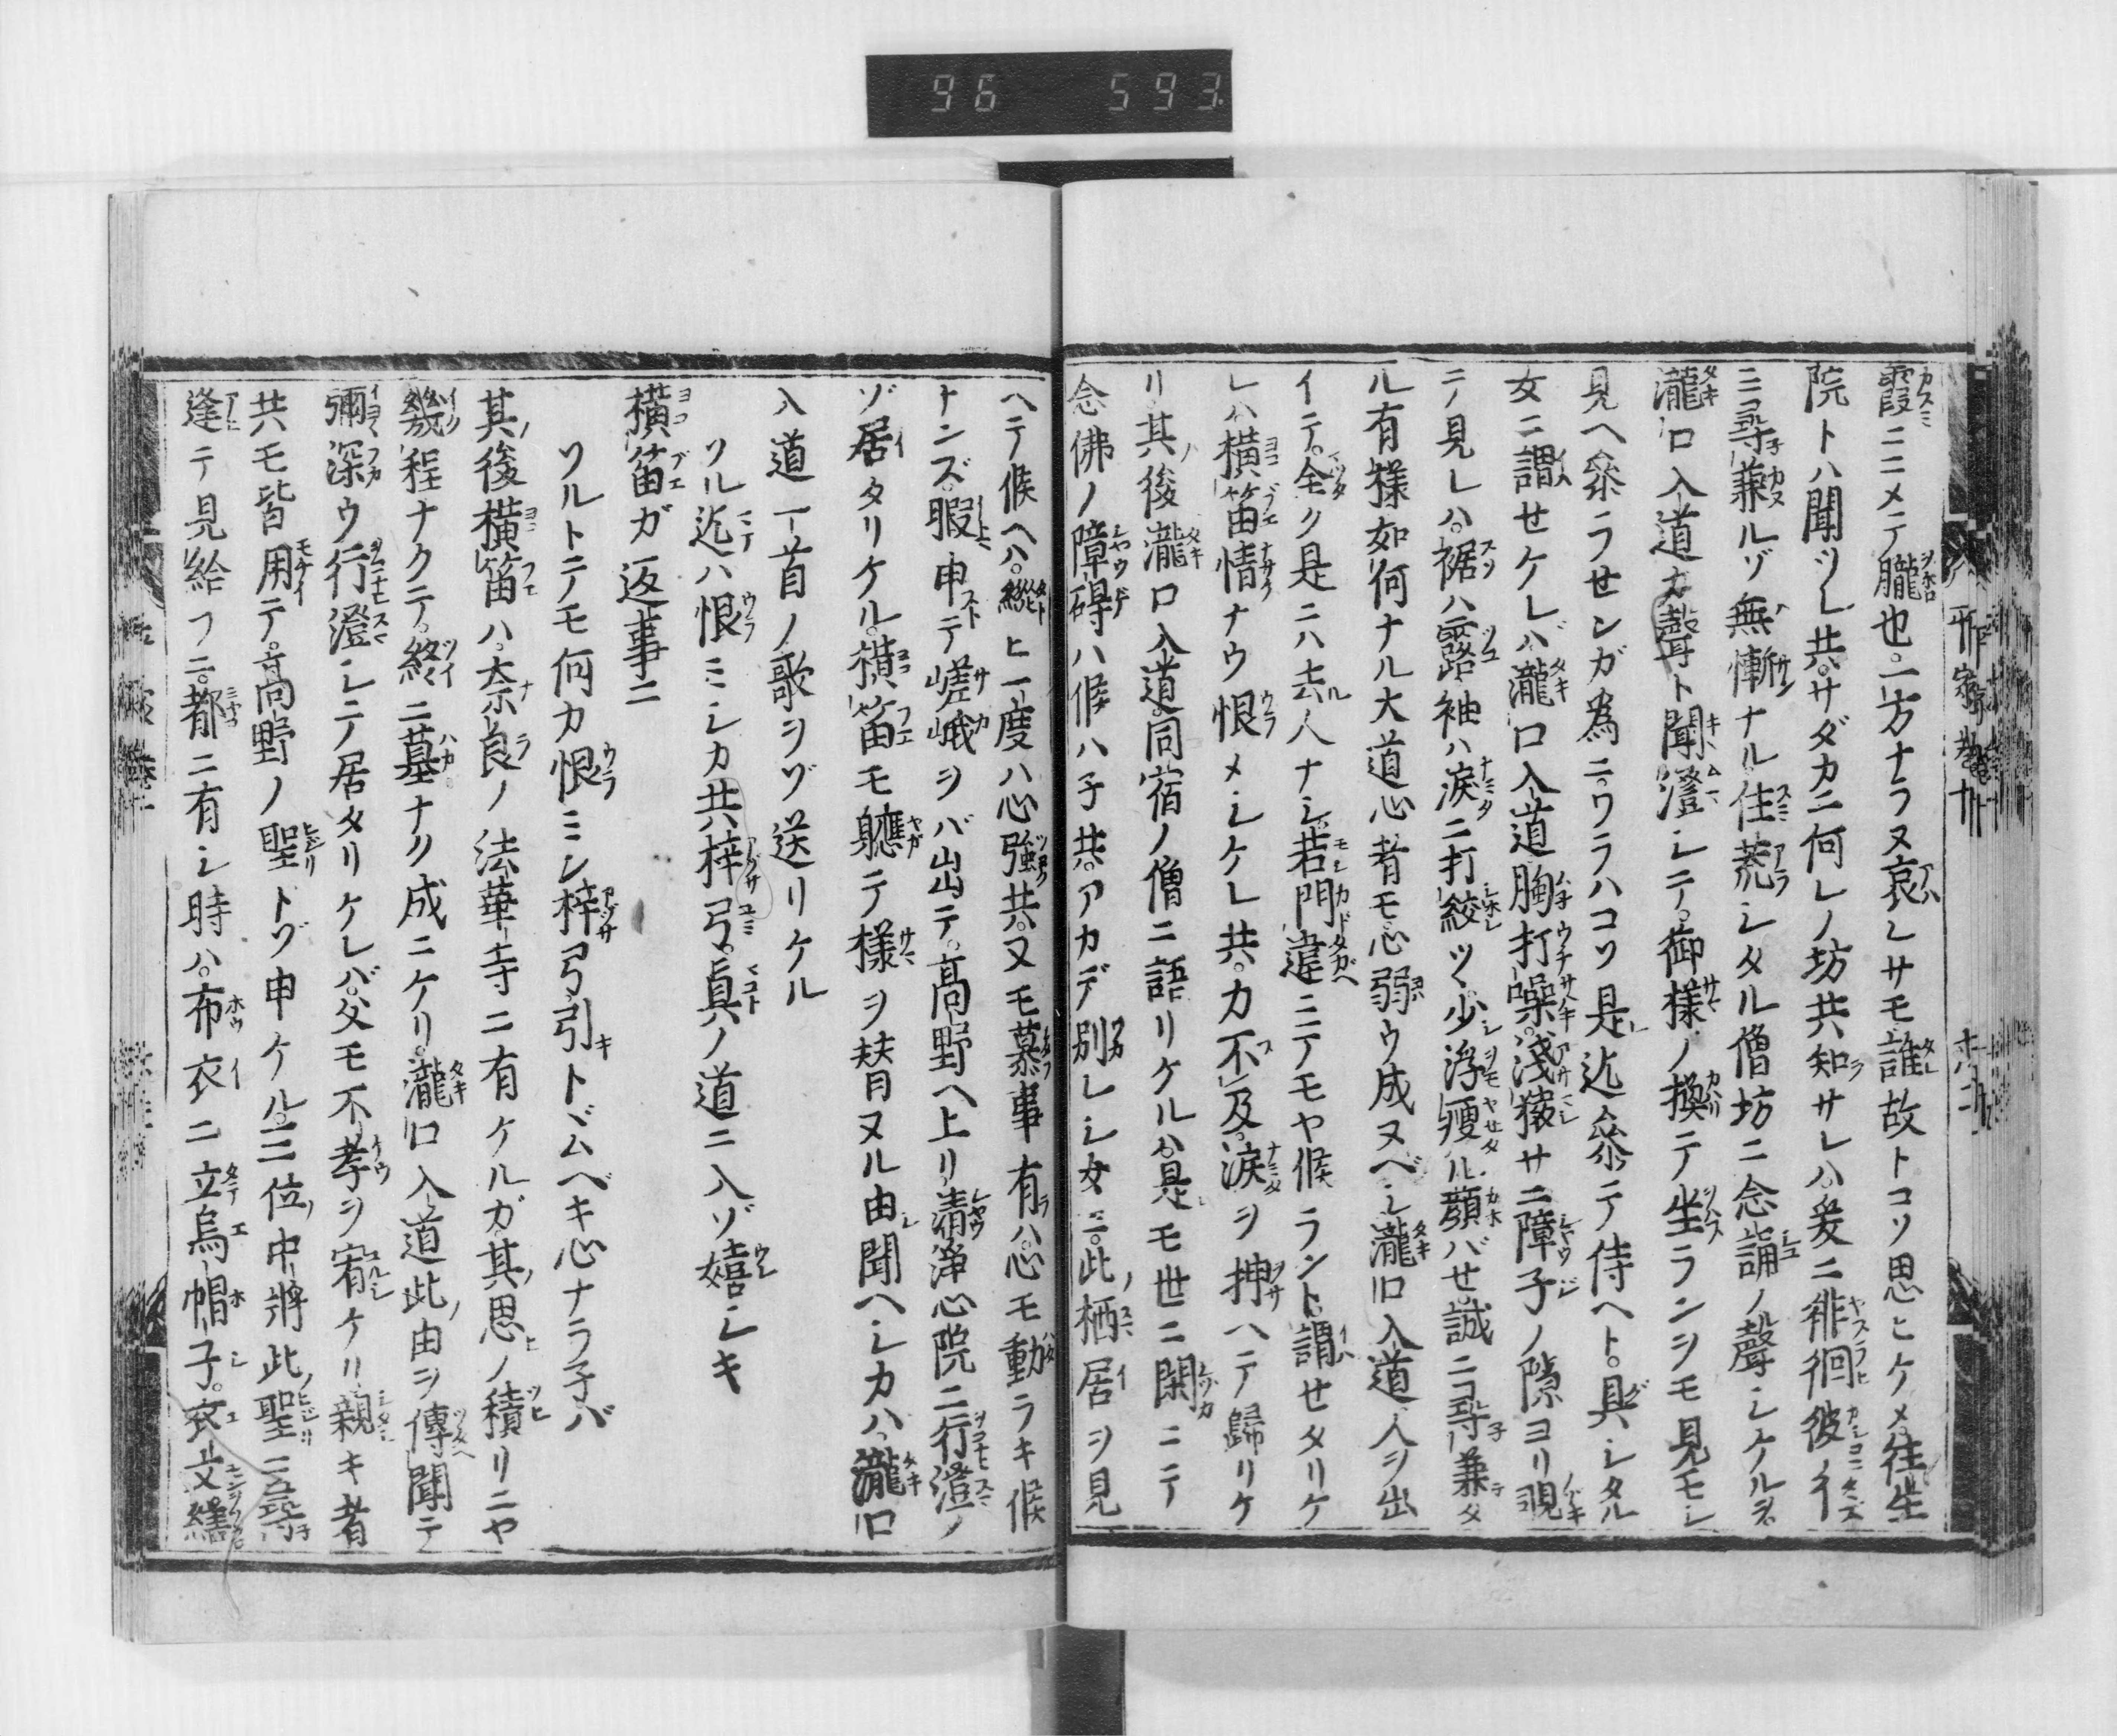 96 593
霞ニコメテ朧也。一方ナラヌ哀レサモ、誰故トコソ思ヒケメ、往生
院トハ聞ツレ共。サダカニ何レノ坊共知サレハ、爰ニ徘徊彼ニイ
ニ尋兼ルゾ無慚ナル。住荒シタル僧坊ニ念誦ノ聲シケルヲ。
瀧口入道カ聲ト聞澄シテ。御樣ノ換テ坐ランヲモ見モシ
見ヘ參ラせンガ爲ニ。ワラハコソ是迄參テ侍ヘト。具シタル
女ニ謂せケレバ、瀧口入道胸打噪。淺猿サニ障子ノ隙ヨリ覗
テ見レハ。裾ハ露袖ハ涙ニ打絞ツヽ、少シ浮瘦タル顏バせ、誠ニ尋兼タ
ル有樣、如何ナル大道心者モ心弱ウ成ヌヘシ、瀧口入道人ヲ出
イテ。全ク是ニハ去人ナシ、若門違ニテモヤ候ラント、謂せタリケ
レハ、橫笛情ナウ恨メシケレ共。力不及、涙ヲ押ヘテ歸リケ
リ、其後瀧口入道、同宿ノ僧ニ語リケルハ、是モ世ニ閑ニテ
念佛ノ障碍ハ候ハ子共。アカデ別レシ女ニ。此栖居ヲ見
平家 卷十
ヘテ候ヘハ。縱ヒ一度ハ心強共。又モ慕事有ハ。心モ動ラキ候
トンズ、暇申テ嵯峨ヲバ出テ。高野ヘ上リ、清淨心院ニ行澄ノ
ゾ居タリケル。橫笛モ軈テ樣ヲ替ヌル由聞ヘシカハ、瀧口
入道一首ノ歌ヲゾ送リケル
ソル迄ハ恨ミシカ共梓弓。眞ノ道ニ入ゾ嬉シキ
橫笛ガ返事ニ
ソルトテモ何カ恨ミン梓弓引トヾムベキ心ナラ子バ
其後橫笛ハ。奈良ノ法華寺ニ有ケルガ、其思ノ積リニヤ
幾程ナクテ。終ニ墓ナク成ニケリ。瀧口入道此由ヲ傳聞テ
彌深ウ行澄シテ居タリケレバ。父モ不孝ヲ宥ケリ、親キ者
共モ皆用テ。高野ノ聖トゾ申ケル、三位中將此聖ニ尋
逢テ見給フニ。都ニ有シ時ハ。布衣ニ立烏帽子。衣文繕